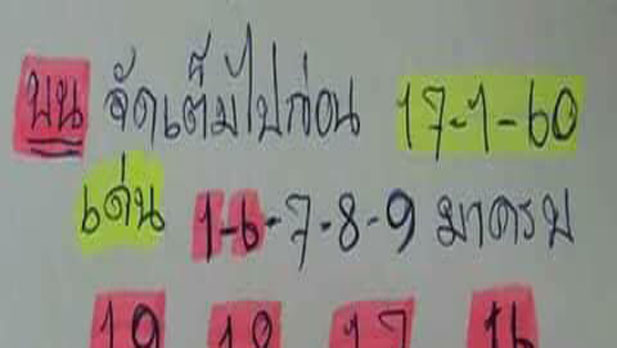 บน จัดเต็มไปก่อน 17-1-60
เด่น 1-6-7-8-9 มาครบ
19 18 17 16